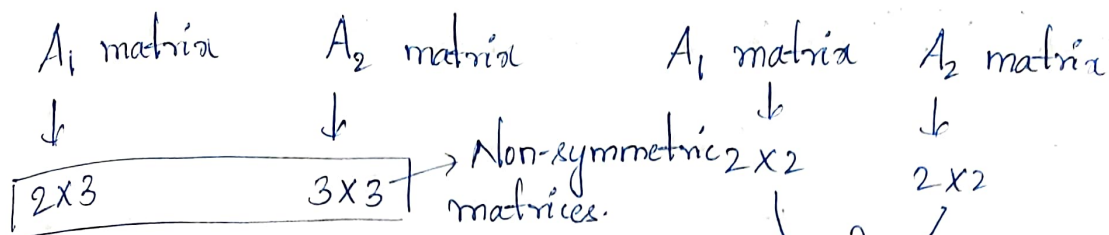 A₁ matrix A₂ matrix A₁ matrix A₂ matrix
↓ ↓ ↓ ↓
2x3 3x3 → Non-symmetric 2x2 2x2
matrices.